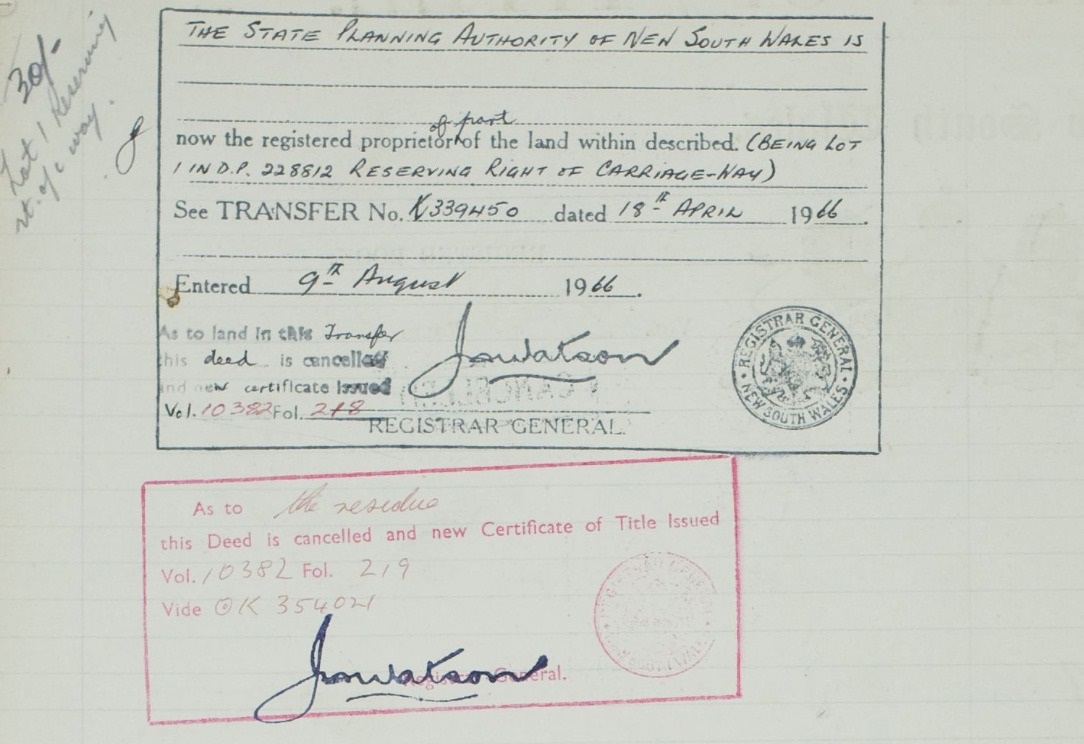 30/-
Lot 1 Reserving
rt. of c way.
THE STATE PLANNING AUTHORITY OF NEW SOUTH WALES IS
of part
now the registered proprietor of the land within described. (BEING LOT
1 IN D.P. 228812 RESERVING RIGHT OF CARRIAGE-WAY)
See TRANSFER No. K339450 dated 18th APRIL 1966.
Entered 9th August 1966.
As to land in this Transfer
this deed is cancelled
and new certificate Issued
Vol. 10382 Fol. 218
Jawatson
REGISTRAR GENERAL.
REGISTRAR GENERAL
NEW SOUTH WALES
As to the residue
this Deed is cancelled and new Certificate of Title Issued
Vol. 10382 Fol. 219
Vide OK 354021
Jawatson
Registrar General.
REGISTRAR GENERAL
NEW SOUTH WALES